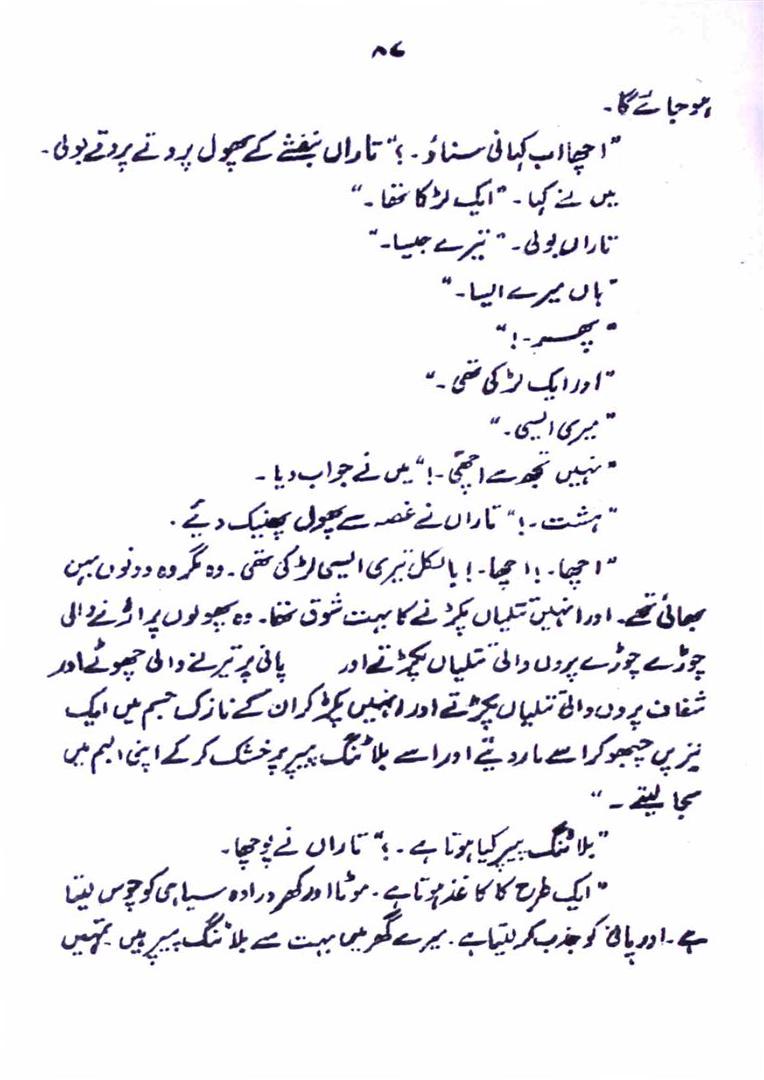 ۸۷
ہوجائے گا۔
"اچھا اب کہانی سناؤ۔؟" تاراں بنفشے کے پھول پروتے پروتے بولی۔
میں نے کہا۔ "ایک لڑکا تھا۔"
تاراں بولی۔ "تیرے جیسا۔"
"ہاں میرے ایسا۔"
"پھر۔!"
"اور ایک لڑکی تھی۔"
"میری ایسی۔"
"نہیں تجھ سے اچھی۔!" میں نے جواب دیا۔
"ہشت۔!" تاراں نے غصہ سے پھول پھینک دیئے۔
"اچھا۔! اچھا۔! بالکل تیری ایسی لڑکی تھی۔ وہ مگر وہ دونوں بہن
بھائی تھے۔ اور انہیں تتلیاں پکڑنے کا بہت شوق تھا۔ وہ پھولوں پر اڑنے والی
چوڑے چوڑے پروں والی تتلیاں پکڑتے اور پانی پر تیرنے والی چھوٹے اور
شفاف پروں والی تتلیاں پکڑتے اور انہیں پکڑ کر ان کے نازک جسم میں ایک
نیز پن چبھو کر اسے مار دیتے اور اسے بلاٹنگ پیپر پر خشک کر کے اپنی البم میں
سجا لیتے۔"
"بلاٹنگ پیپر کیا ہوتا ہے۔؟" تاراں نے پوچھا۔
"ایک طرح کا کاغذ ہوتا ہے۔ موٹا اور کھردرا وہ سیاہی کو چوس لیتا
ہے۔ اور پانی کو جذب کر لیتا ہے۔ میرے گھر میں بہت سے بلاٹنگ پیپر ہیں۔ تمہیں